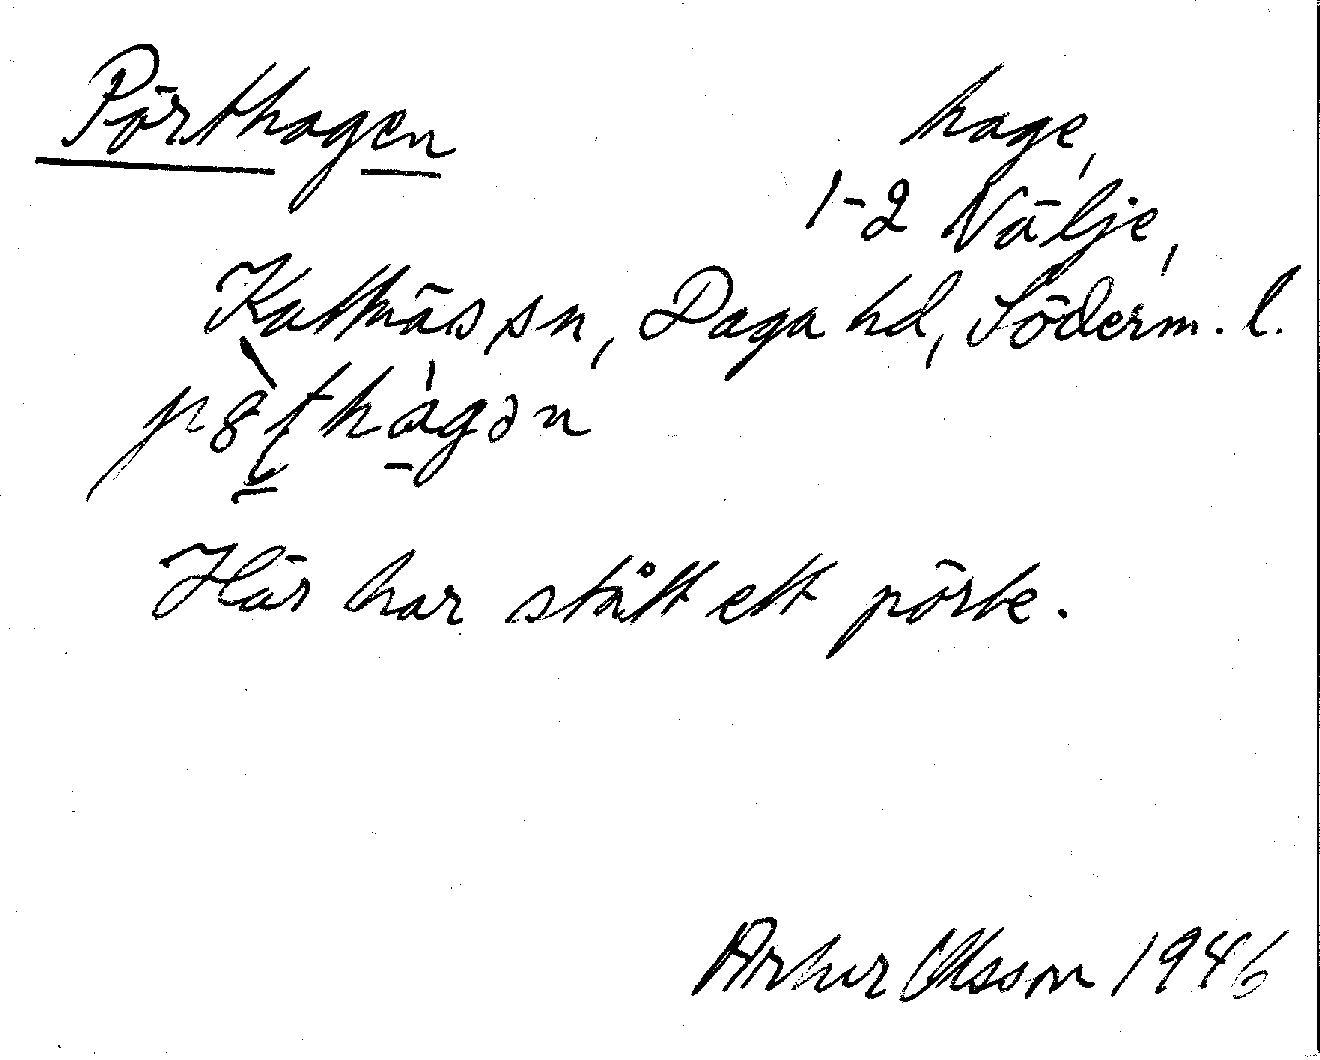 Pörthagen
hage,
1-2 Välje,
Kattnäs sn, Daga hd, Söderm. l.
Här har stått ett pörte.
Arthur Olsson 1946